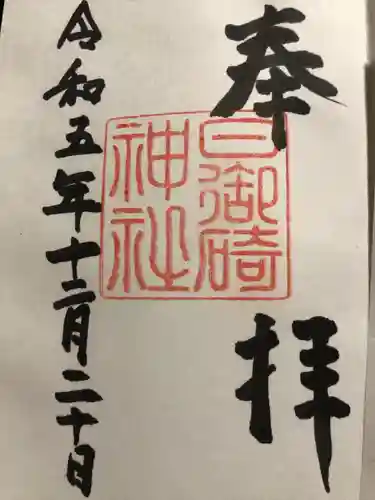 奉拝
日御碕神社
令和五年十二月二十日